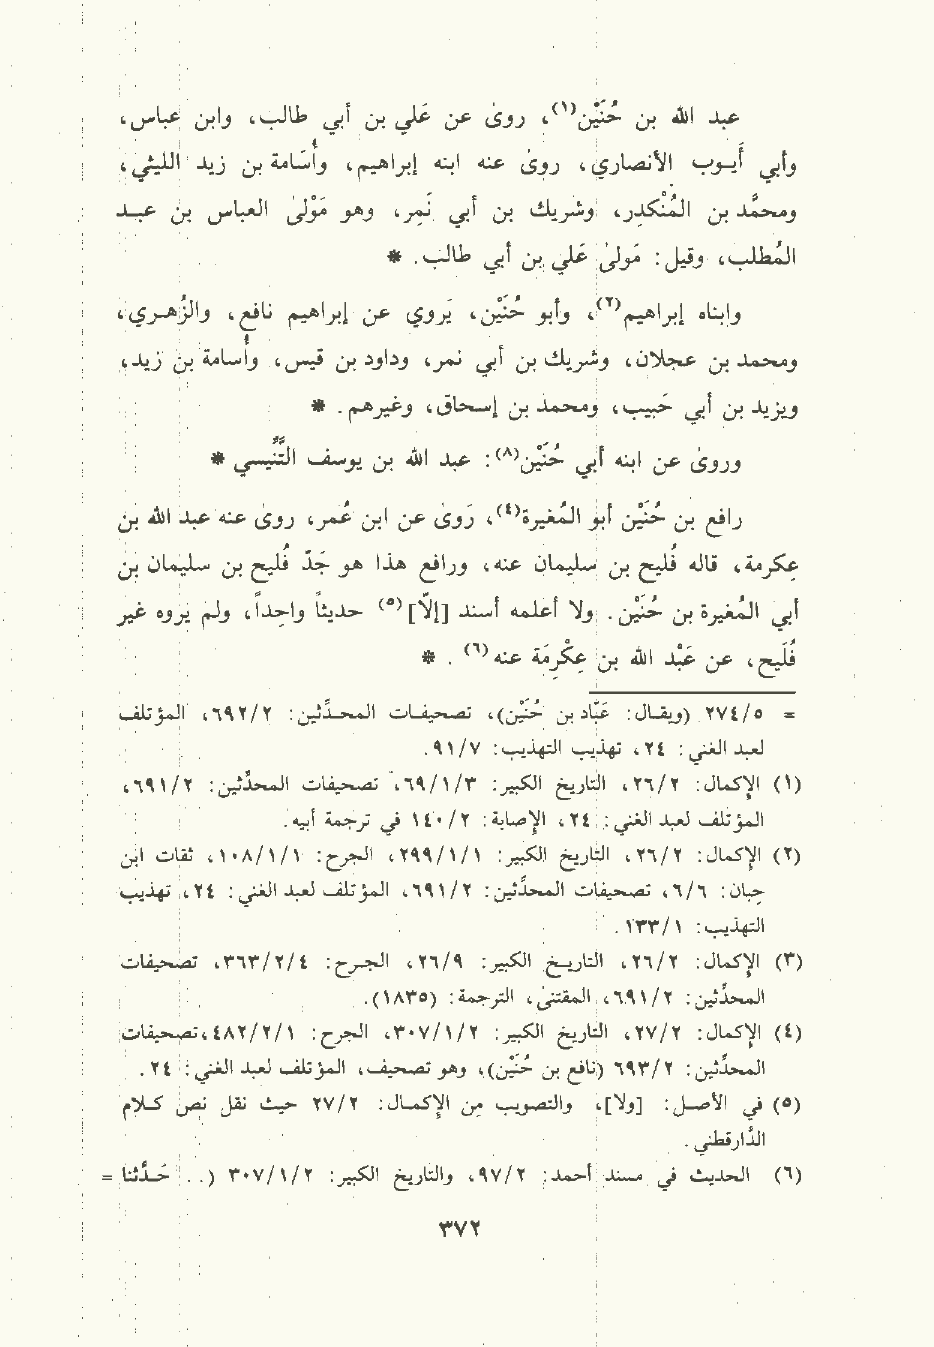 عبد الله بن حُنَيْن(١)، روىٰ عن عَلي بن أبي طالب، وابن عباس،
وأبي أَيـوب الأنصاري، روىٰ عنه ابنه إبراهيم، وأُسَامة بن زيد الليثي،
ومحمَّد بن المُنْكدِر، وشريك بن أبي نَمِر، وهو مَوْلىٰ العباس بن عبـد
المُطلب، وقيل: مَولىٰ عَلي بن أبي طالب. *
وابناه إبراهيم(٢)، وأبو حُنَيْن، يَروي عن إبراهيم نافع، والزُهـري،
ومحمد بن عجلان، وشريك بن أبي نمر، وداود بن قيس، وأُسامة بن زيد،
ويزيد بن أبي حَبيب، ومحمد بن إسحاق، وغيرهم. *
وروىٰ عن ابنه أبي حُنَيْن(٨): عبد الله بن يوسف التَّنُيسي *
رافع بن حُنَيْن أبو المُغيرة(٤)، رَوىٰ عن ابن عُمر، روىٰ عنه عبد الله بن
عِكرمة، قاله فُليح بن سليمان عنه، ورافع هذا هو جَدّ فُليح بن سليمان بن
أبي المُغيرة بن حُنَيْن. ولا أعلمه أسند [إلاّ](٥) حديثاً واحِداً، ولم يروه غير
فُلَيح، عن عَبْد الله بن عِكْرِمَة عنه(٦). *
= ٢٧٤/٥ (ويقـال: عَبّاد بن حُنَيْن)، تصحيفـات المحـدِّثين: ٦٩٢/٢، المؤتلف
لعبد الغني: ٢٤، تهذيب التهذيب: ٩١/٧.
(١) الإكمال: ٢٦/٢، التاريخ الكبير: ٦٩/١/٣، تصحيفات المحدِّثين: ٦٩١/٢،
المؤتلف لعبد الغني: ٢٤، الإصابة: ١٤٠/٢ في ترجمة أبيه.
(٢) الإكمال: ٢٦/٢، التاريخ الكبير: ٢٩٩/١/١، الجرح: ١٠٨/١/١، ثقات ابن
حِبان: ٦/٦، تصحيفات المحدِّثين: ٦٩١/٢، المؤتلف لعبد الغني: ٢٤، تهذيب
التهذيب: ١٣٣/١.
(٣) الإكمال: ٢٦/٢، التاريـخ الكبير: ٢٦/٩، الجـرح: ٣٦٣/٢/٤، تصحيفات
المحدِّثين: ٦٩١/٢، المقتنىٰ، الترجمة: (١٨٣٥).
(٤) الإكمال: ٢٧/٢، التاريخ الكبير: ٣٠٧/١/٢، الجرح: ٤٨٢/٢/١، تصحيفات
المحدِّثين: ٦٩٣/٢ (نافع بن حُنَيْن)، وهو تصحيف، المؤتلف لعبد الغني: ٢٤.
(٥) في الأصـل: [ولا]، والتصويب مِن الإكمـال: ٢٧/٢ حيث نقل نص كـلام
الدَّارقطني.
(٦) الحديث في مسند أحمد: ٩٧/٢، والتاريخ الكبير: ٣٠٧/١/٢ (.. حَـدَّثنا =
٣٧٢